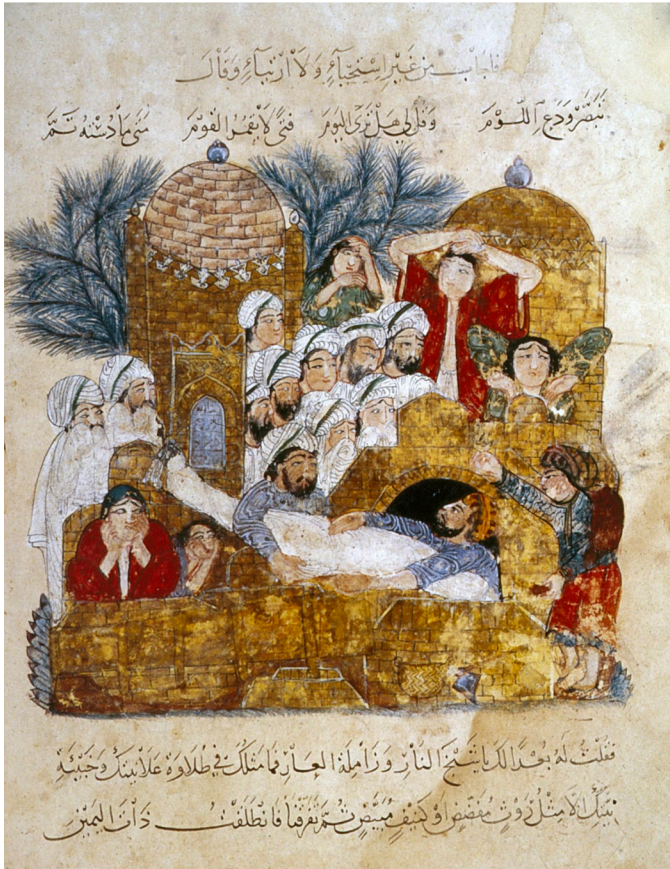 فاجاب من غَيْرِ اسْتِحْيَآءٍ وَلَا ارْتِيَآءٍ وَقَالَ
تَبَصَّرْ وَدَعِ اللَّوْمَ وَقُل لِي هَلْ تَرَى اليَوْمَ فَتًى لَا يَقْمُرُ القَوْمَ مَتَى مَا دَسْتُهُ تَمَّ
فَقُلْتُ لَهُ بُعْدًا لَكَ يَا شَيْخَ النَّارِ وَزَامِلَةَ العَارِ فَمَا مَثَلُكَ فِي طَلَاوَةِ عَلَانِيَتِكَ وَخُبْثِ
نِيَّتِكَ الَّا مَثَلُ رَوْثٍ مُفَضَّضٍ اوْ كَنِيفٍ مُبَيَّضٍ ثُمَّ تَفَرَّقْنَا فَانْطَلَقْتُ ذَاتَ اليَمِينِ